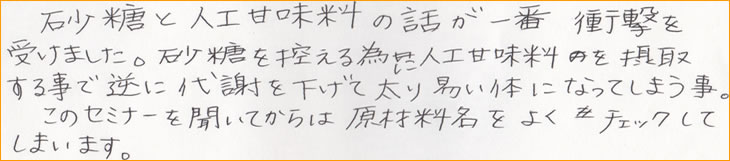 砂糖と人工甘味料の話が一番 衝撃を
受けました。砂糖を控える為に人工甘味料のを摂取
する事で逆に代謝を下げて太り易い体になってしまう事。
このセミナーを聞いてからは原材料名をよくチェックして
しまいます。